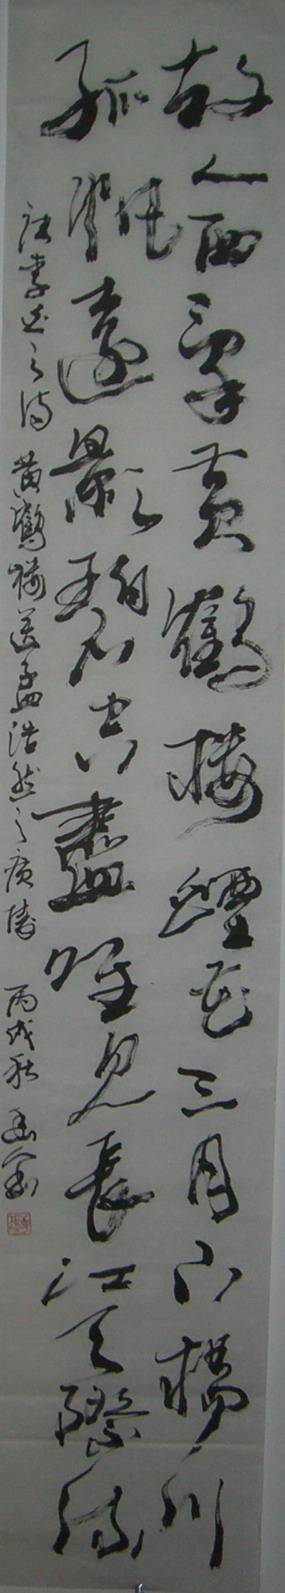 故人西辭黃鶴樓煙花三月下揚州
孤帆遠影碧空盡唯見長江天際流
李白之詩 黃鶴樓送孟浩然之廣陵 丙戌秋